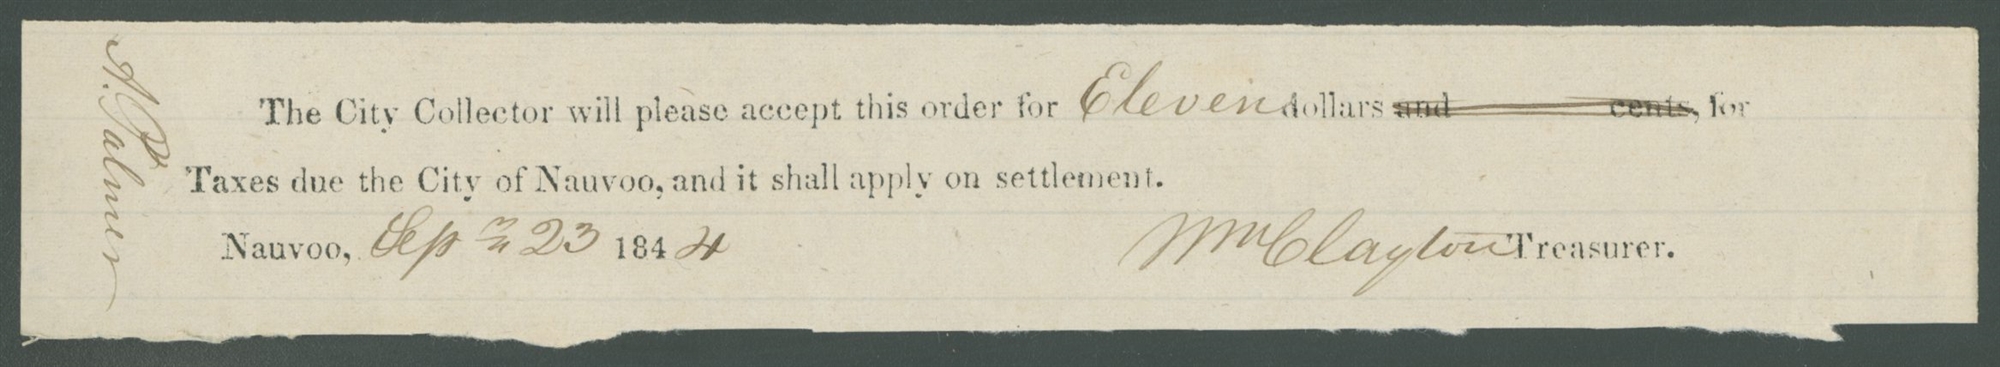 A. Palmer
The City Collector will please accept this order for Eleven dollars and cents, for
Taxes due the City of Nauvoo, and it shall apply on settlement.
Nauvoo, Sep 23 1844 Wm Clayton Treasurer.